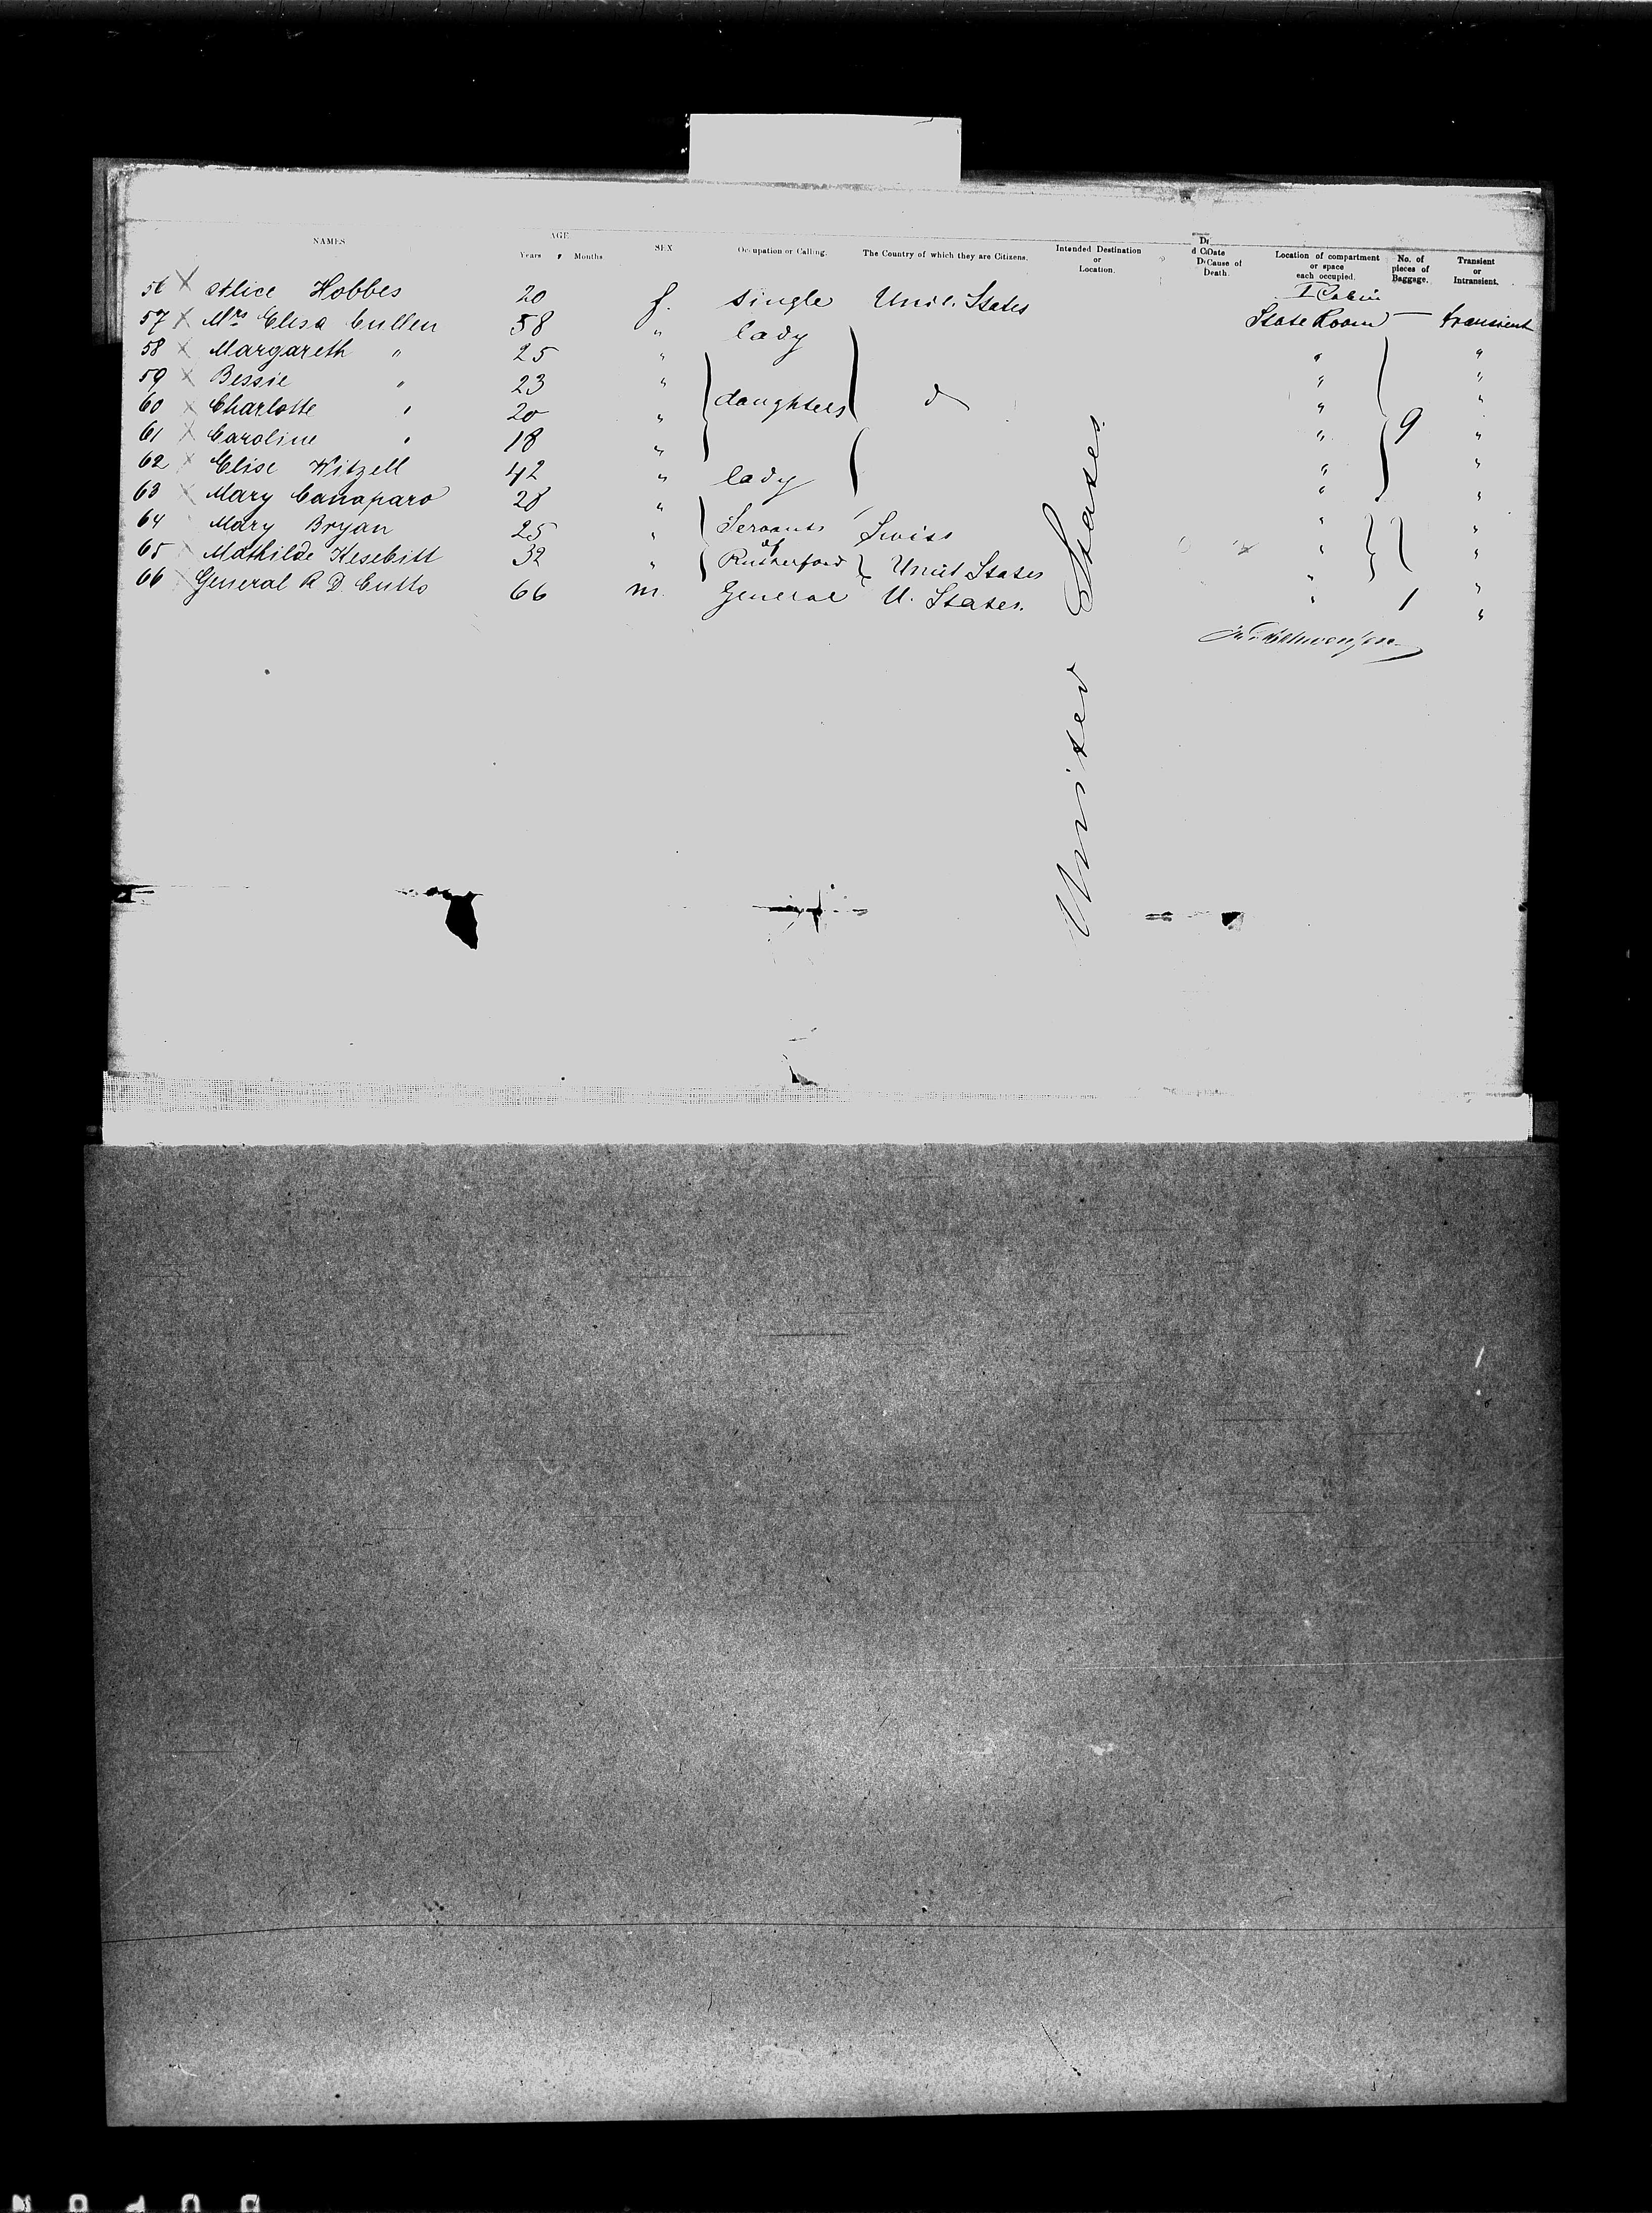 NAMES AGE Years Months SEX Occupation or Calling. The Country of which they are Citizens. Intended Destination or Location. Date Cause of Death. Location of compartment or space each occupied. No. of pieces of Baggage. Transient or Intransient.
56 X Alice Hobbes 20 f. single Unit. States I Cabin
57 X Mrs Elisa Cullen 58 " lady State Room — transient
58 X Margareth " 25 " " "
59 X Bessie " 23 " " "
60 X Charlotte " 20 " daughters d " " 9
61 X Caroline " 18 " " "
62 X Elise Witzell 42 " lady " "
63 X Mary Canaparo 28 " " "
64 Mary Bryan 25 " Servants Swiss " "
65 Mathilde Kesebitt 32 " of Rutherford Unit States " "
66 General R D. Cutts 66 m. General U. States. " 1 "
United States